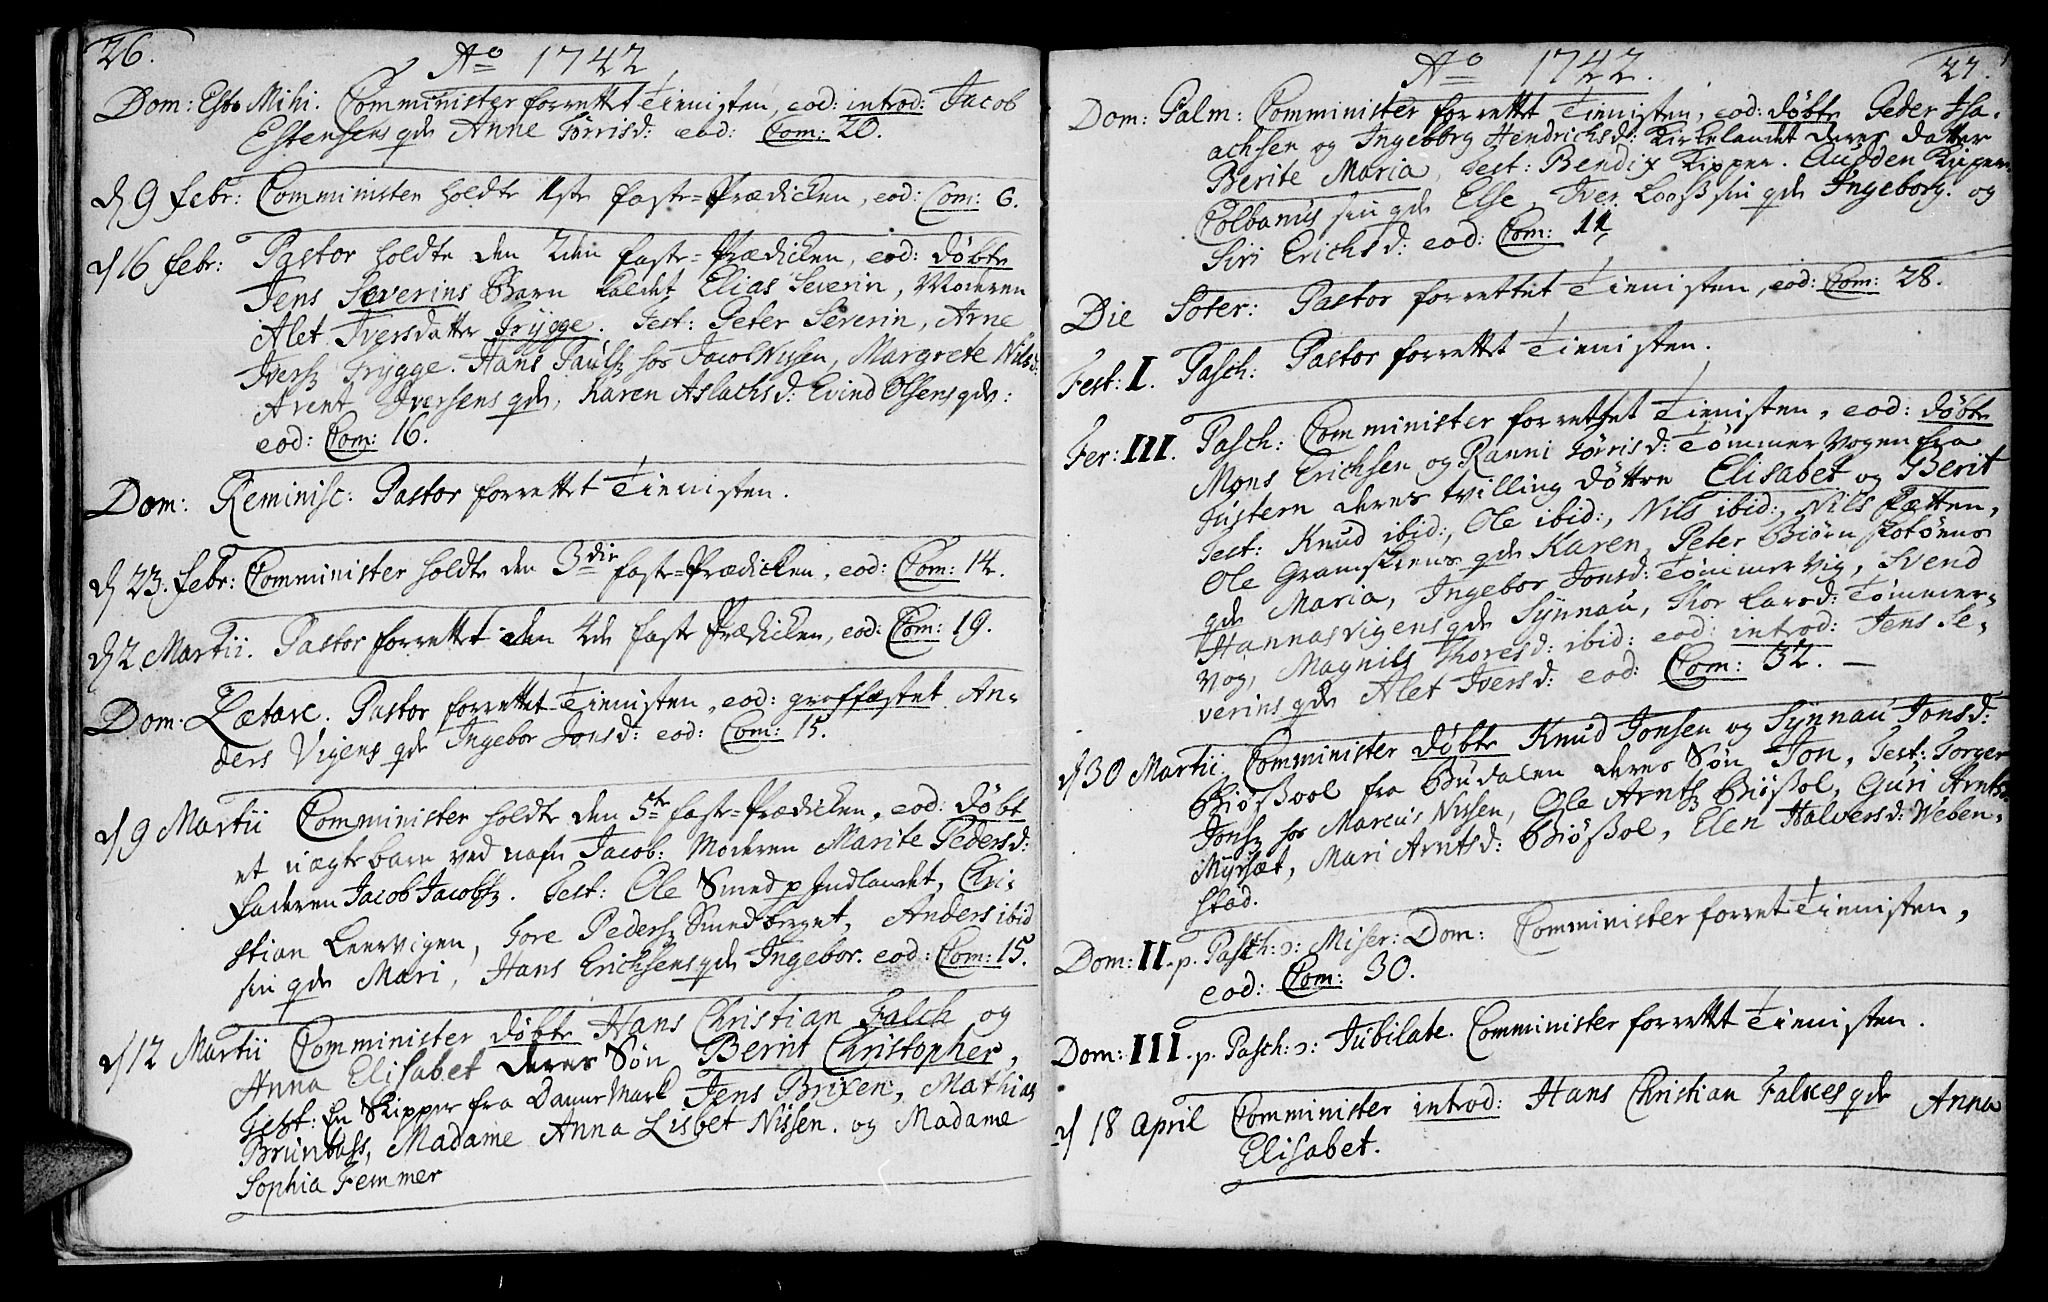 26.
Ao 1742
Dom: Esto Mihi. Comminister forrettet Tienisten, eod: introd: Jacob
Estensens qde Anne Torrisd: eod: Com: 20.
d 9 febr: Comministen holdte 1ste faste=Prædicken, eod: Com: 6.
d 16 febr: Pastor holdte den 2den faste=Prædicken, eod: døbte
Jens Severins Barn kaldet Elias Severin, Moderen
Alet Iversdatter Trygge. Test: Peter Severin, Arne
Iversz Trygge. Hans Paulsz hos Jacob Nissen, Margrete Nilsd:
Arent Iversens qde, Karen Aslachsd: Evind Olsens qde:
eod: Com: 16.
Dom: Reminisc: Pastor forrettet Tienisten.
d 23. febr: Comminister holdte den 3die faste=Prædicken, eod: Com: 14.
d 2 Martii. Pastor forrettet den 4de faste Prædicken, eod: Com: 19.
Dom: Lætare. Pastor forrettet Tienisten, eod: groffæstet An=
ders Vigens qde Ingebor Jonsd: eod: Com: 15.
d 9 Martii Comminister holdte den 5te faste=Prædicken, eod: døbt
et uægte barn ved nafn Jacob: Moderen Marite Pedersd:
faderen Jacob Jacobsz. Test: Ole Smed p Indlandet, Chri=
stian Leervigen, Tore Pedersz Smedberget, Anders ibid
sin qde Mari, Hans Erichsens qde Ingebor. eod: Com: 15.
d 12 Martii Comminister døbte Hans Christian Falch og
Anna Elisabet deres Søn Bernt Christopher,
Test: En Skipper fra Dannemark Jens Brixen, Mathias
Madame Anna Lisbet Nissen. og Madame
Sophia Femmer
Ao 1742.
27.
Dom: Palm: Comminister forrettet Tienisten, eod: døbte Peder Isa=
achsen og Ingeborg Hendrichsd: Kirkelandet deres datter
Berite Maria, Test: Bendix Kipper. Audden
Colbanus sin qde Else, Iver Looss sin qde Ingeborg. og
Siri Erichsd: eod: Com: 11
Die Soter: Pastor forrettet Tienisten, eod: Com: 28.
Fest: I. Pasch: Pastor forrettet Tienisten.
Fer: III. Pasch: Comminister forrettet Tienisten, eod: døbte
Mons Erichsen og Ranni Torrisd: Tømmervogen fra
Justern deres tvilling døttre Elisabet og Berit
Test: Knud ibid:, Ole ibid:, Nils ibid:, Nils Sætten,
Ole Gramskiens qde Karen, Peter Biørn
qde Maria, Ingebor Jonsd: Tømmervig, Svend
Hannasvigens qde Synnau, Thor Larsd: Tømmer=
vog, Magnild Thoresd: ibid: eod: introd: Jens Se=
verins qde Alet Iversd: eod: Com: 32. —
d 30 Martii. Comminister døbte Knud Jonsen og Synnau Jonsd:
Biøssvol fra Budalen deres Søn Jon, Test: Torger
Jonsz hos Marcus Nissen, Ole Arntsz Biøssol, Guri Arntsd:
Myrsæt, Mari Arntsd: Biøssol, Elen Halversd: Weben=
stad.
Dom: II. p. Pasch: ɔ: Miser: Dom: Comminister forret Tienisten,
eod: Com: 30.
Dom: III. p. Pasch: ɔ: Jubilate. Comminister forrettet Tienisten.
d 18 April Comminister introd: Hans Christian Falkes qde Anna
Elisabet.